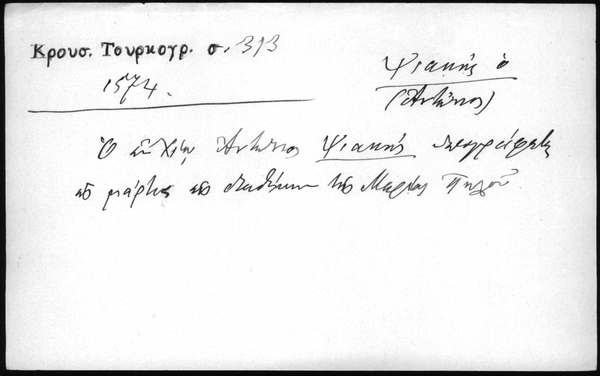 Κρουσ. Τουρκογρ. σ. 313
1574.
Ψιακής ὁ
(Ἀντώνιος)
Ὁ ἐν Χίῳ Ἀντώνιος Ψιακής ὑπογράφεται
ὡς μάρτυς εἰς διαθήκην τῆς Μαρίας